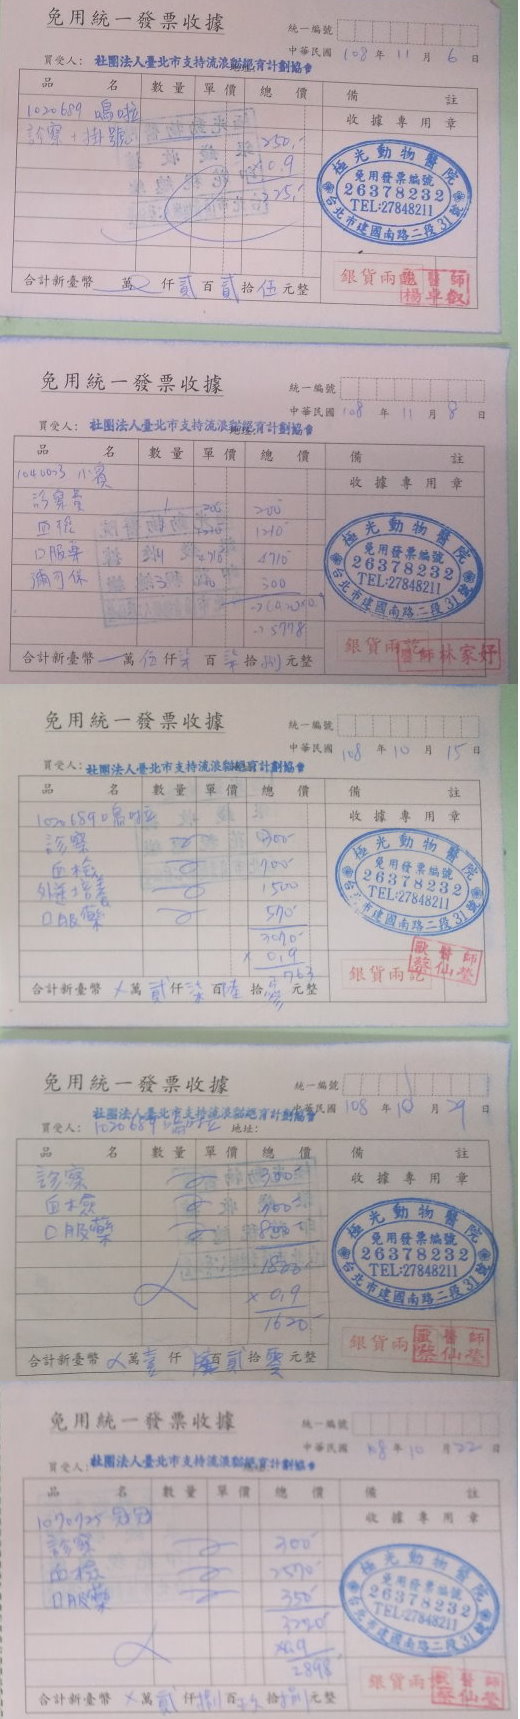 免用統一發票收據
統一編號
中華民國 108 年 11 月 6 日
買受人: 社團法人臺北市支持流浪貓絕育計劃協會
品 名 數量 單價 總價 備 註
1020689 嗚啦 收據專用章
診察+掛號 250
0.9
225
極光動物醫院
免用發票編號
26378232
TEL:27848211
台北市建國南路二段31號
銀貨兩訖
醫師
楊卓叡
合計新臺幣 萬 仟 貳 百 貳 拾 伍 元整
免用統一發票收據
統一編號
中華民國 108 年 11 月 8 日
買受人: 社團法人臺北市支持流浪貓絕育計劃協會
品 名 數量 單價 總價 備 註
1040023 小賓 收據專用章
診察費 1 200 200
血檢 1210 1210
口服藥 14 4710
彌可保 3 300
5778
極光動物醫院
免用發票編號
26378232
TEL:27848211
台北市建國南路二段31號
銀貨兩訖
醫師林家妤
合計新臺幣 萬 伍 仟 柒 百 柒 拾 捌 元整
免用統一發票收據
統一編號
中華民國 108 年 10 月 15 日
買受人: 社團法人臺北市支持流浪貓絕育計劃協會
品 名 數量 單價 總價 備 註
1020689 嗚啦 收據專用章
診察 300
血檢 700
外送培養 1500
口服藥 570
3070
x 0.9
2763
極光動物醫院
免用發票編號
26378232
TEL:27848211
台北市建國南路二段31號
銀貨兩訖
獸醫師
蔡仙瑩
合計新臺幣 萬 貳 仟 柒 百 陸 拾 參 元整
免用統一發票收據
統一編號
中華民國 108 年 10 月 29 日
社團法人臺北市支持流浪貓絕育計劃協會
買受人: 1020689 嗚啦 地址:
品 名 數量 單價 總價 備 註
診察 300 收據專用章
血檢 700
口服藥 800
1800
x 0.9
1620
極光動物醫院
免用發票編號
26378232
TEL:27848211
台北市建國南路二段31號
銀貨兩訖
獸醫師
蔡仙瑩
合計新臺幣 萬 壹 仟 陸 百 貳 拾 零 元整
免用統一發票收據
統一編號
中華民國 108 年 10 月 22 日
買受人: 社團法人臺北市支持流浪貓絕育計劃協會
品 名 數量 單價 總價 備 註
1070725 冠冠 收據專用章
診察 300
血檢 2570
口服藥 350
3220
x0.9
2898
極光動物醫院
免用發票編號
26378232
TEL:27848211
台北市建國南路二段31號
銀貨兩訖
獸醫師
蔡仙瑩
合計新臺幣 萬 貳 仟 捌 百 玖 拾 捌 元整